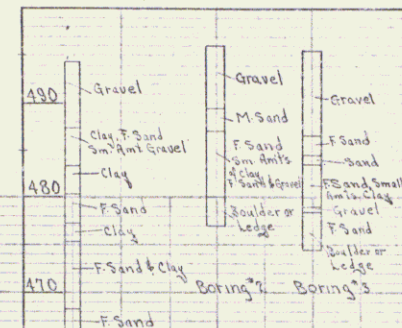 490
480
470
Gravel
Clay, F. Sand
Sm. Amt Gravel
Clay
F. Sand
Clay
F. Sand & Clay
F. Sand
Gravel
M. Sand
F. Sand
Sm. Amt's
of Clay
F. Sand & Gravel
Boulder or
Ledge
Boring #2
Gravel
F. Sand
Sand
F. Sand, Small
Amts. Clay
Gravel
F. Sand
Boulder or
Ledge
Boring #3